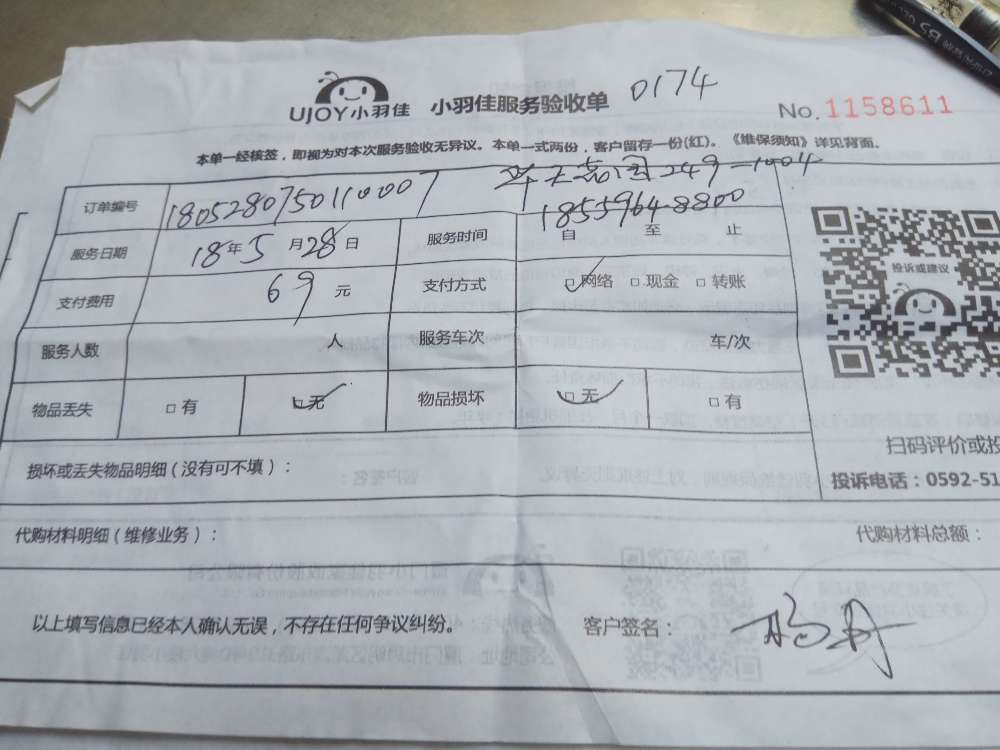 UJOY小羽佳 小羽佳服务验收单 0174
No.1158611
本单一经核签，即视为对本次服务验收无异议。本单一式两份，客户留存一份(红)。《维保须知》详见背面。
订单编号 1805280750110007 249-1004
18559648800
服务日期 18年5月28日 服务时间 自 至 止
支付费用 69元 支付方式 网络 □现金 □转账
服务人数 人 服务车次 车/次
物品丢失 □有 □无 物品损坏 □无 □有
投诉或建议
扫码评价或投
损坏或丢失物品明细（没有可不填）：
投诉电话：0592-51
代购材料明细（维修业务）： 代购材料总额：
以上填写信息已经本人确认无误，不存在任何争议纠纷。 客户签名：杨丹